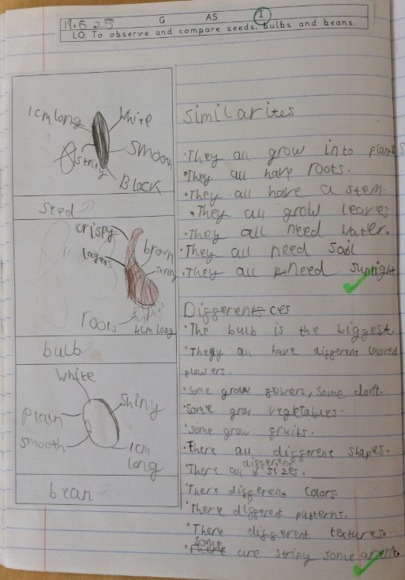 G AS I
LO: To observe and compare seeds, bulbs and beans.
1cm long
White
Smooth
stripy
Black
Seed
crispy
layers
brown
roots
4cm long
bulb
White
Shiny
plain
smooth
1cm
long
bean
Similarites
• They all grow into plants
• They all have roots.
• They all have a stem.
• They all grow leaves
• They all need water.
• They all need Soil
• They all need sunlight
Differentces
• The bulb is the biggest.
• They all have different colored
flowers.
• Some grow flowers, Some dont.
• Some grow vegetables.
• Some grow fruits.
• There all different shapes.
• There all different sizes.
• There different Colors.
• There different patterns.
• There different textures
• Some are stripy some arent.